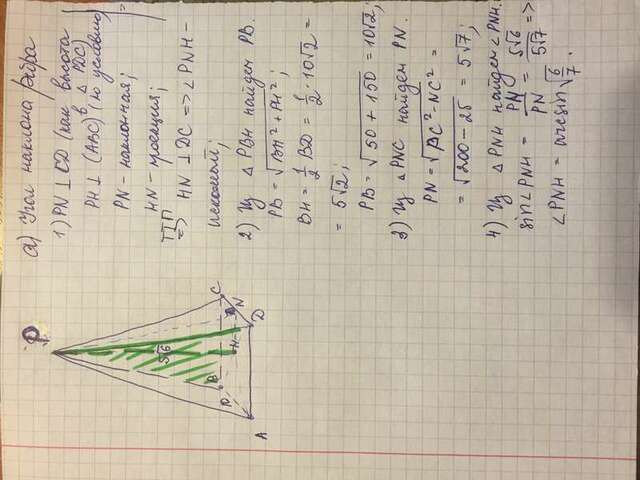 а) Угол наклона ребра
1) PN ⊥ CD (как высота в △ PDC)
PH ⊥ (ABC) (по условию)
PN - наклонная;
HN - проекция;
ТТП => HN ⊥ DC => ∠PNH -
искомый;
2) Из △ PBH найдем PB.
PB = √BH² + PH²;
BH = 1/2 BD = 1/2 · 10√2 =
= 5√2;
PB = √50 + 150 = 10√2;
3) Из △ PNC найдем PN.
PN = √PC² - NC² =
= √200 - 25 = 5√7;
4) Из △ PNH найдем ∠PNH.
sin∠PNH = PN = 5√6 / 5√7 =>
∠PNH = arcsin √6/7.
P
5√6
B
C
N
H
D
A